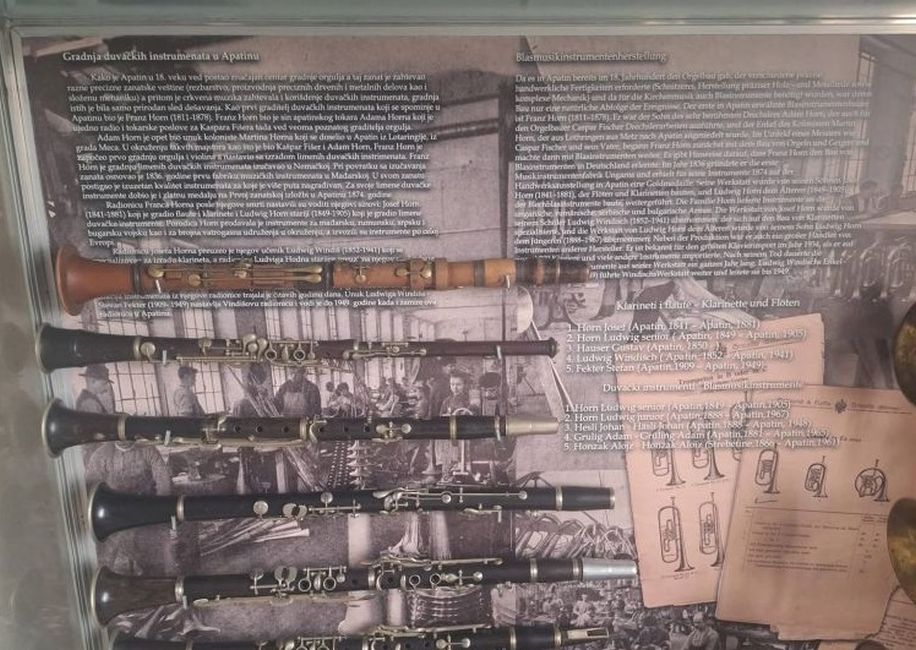 Gradnja duvačkih instrumenata u Apatinu
Kako je Apatin u 18. veku već postao značajan centar gradnje orgulja a taj zanat je zahtevao
razne precizne zanatske veštine (rezbarstvo, proizvodnja preciznih drvenih i metalnih delova kao i
složenu mehaniku) a pritom je crkvena muzika zahtevala i korišćenje duvačkih instrumenata, gradnja
istih je bila samo prirodan sled dešavanja. Kao prvi graditelj duvačkih instrumenata koji se spominje u
Apatinu bio je Franz Horn (1811-1878). Franz Horn bio je sin apatinskog tokara Adama Horna koji je
ujedno radio i tokarske poslove za Kašpara Fišera tada već veoma poznatog graditelja orgulja.
Adam Horn je opet bio unuk koloniste Martina Horna koji se doselio u Apatin iz Lotaringije, iz
grada Meca. U okruženju takvih majstora kao što je bio Kašpar Fišer i Adam Horn, Franz Horn je
započeo prvo gradnju orgulja i violina a nastavio se izradom limenih duvačkih instrumenata. Franz
Horn je gradnju limenih duvačkih instrumenata izučavao u Nemačkoj. Pri povratku sa izučavanja
zanata osnovao je 1836. godine prvu fabriku muzičkih instrumenata u Mađarskoj. U svom zanatu
postigao je izuzetan kvalitet instrumenata za koje je više puta nagrađivan. Za svoje limene duvačke
instrumente dobio je i zlatnu medalju na Prvoj zanatskoj izložbi u Apatinu 1874. godine.
Radionicu Franca Horna posle njegove smrti nastavili su voditi njegovi sinovi: Josef Horn
(1841-1881) koji je gradio flaute i klarinete i Ludwig Horn stariji (1849-1905) koji je gradio limene
duvačke instrumente. Porodica Horn prodavala je instrumente za mađarsku, rumunsku, srpsku i
bugarsku vojsku kao i za brojna vatrogasna udruženja u okruženju, a izvozili su instrumente i po celoj
Evropi.
Radionicu Josefa Horna preuzeo je njegov učenik Ludwig Windiš (1852-1941) koji se
instrumenata iz njegove radionice trajala je čitavih godinu dana. Unuk Ludwiga Windiša
Stefan Fekter (1909-1949) nastavlja Vindišovu radionicu i vodi je do 1949. godine kada i zamire ova
radionica u Apatinu.
Blasmusikinstrumentenherstellung
Da es in Apatin bereits im 18. Jahrhundert den Orgelbau gab, der verschiedene präzise
handwerkliche Fertigkeiten erforderte (Schnitzerei, Herstellung präziser Holz- und Metallteile sowie
komplexe Mechanik) und da für die Kirchenmusik auch Blasinstrumente benötigt wurden, war deren
Bau nur eine natürliche Abfolge der Ereignisse. Der erste in Apatin erwähnte Blasinstrumentenbauer
ist Franz Horn (1811-1878). Er war der Sohn des sehr berühmten Drechslers Adam Horn, der auch für
den Orgelbauer Caspar Fischer Drechslerarbeiten ausführte, und der Enkel des Kolonisten Martin
Horn, der aus Lothringen aus Metz nach Apatin angesiedelt wurde. Im Umfeld eines Meisters wie
Caspar Fischer und sein Vater, begann Franz Horn zunächst mit dem Bau von Orgeln und Geigen und
machte dann mit Blasinstrumenten weiter. Es gibt Hinweise darauf, dass Franz Horn den Bau von
Blasinstrumenten in Deutschland erlernte. Im Jahr 1836 gründete er die erste
Musikinstrumentenfabrik Ungarns und erhielt für seine Instrumente 1874 auf der
Handwerksausstellung in Apatin eine Goldmedaille. Seine Werkstatt wurde von seinen Söhnen Josef
Horn (1841-1881), der Flöten und Klarinetten baute, und Ludwig Horn dem Älteren (1849-1905),
der Blechblasinstrumente baute, weitergeführt. Die Familie Horn lieferte Instrumente an die
ungarische, rumänische, serbische und bulgarische Armee. Die Werkstatt von Josef Horn wurde von
seinem Schüler Ludwig Windisch (1852-1941) übernommen, der sich auf den Bau von Klarinetten
spezialisierte, und die Werkstatt von Ludwig Horn dem Älteren wurde von seinem Sohn Ludwig Horn
dem Jüngeren (1888-1967) übernommen. Neben der Produktion war er auch ein großer Händler von
Instrumenten anderer Hersteller.
Klarineti i flaute - Klarinette und Flöten
1. Horn Josef (Apatin, 1841 - Apatin, 1881)
2. Horn Ludwig senior ( Apatin, 1849 - Apatin, 1905)
3. Hauser Gustav (Apatin, 1850 - )
4. Ludwig Windisch ( Apatin, 1852 - Apatin, 1941)
5. Fekter Stefan (Apatin,1909 - Apatin, 1949)
Duvački instrumenti "Blasmusikinstrumente
1. Horn Ludwig senior (Apatin,1849 - Apatin,1905)
2. Horn Ludwig junior (Apatin,1888 - Apatin,1967)
3. Hesli Johan - Häsli Johan (Apatin,1888 - Apatin, 1948)
4. Grulig Adam - Grüling Adam (Apatin,1881 - Apatin,1965)
5. Honzak Alojz - Honzak Aloiz (Strebetine,1866 - Apatin,1961)